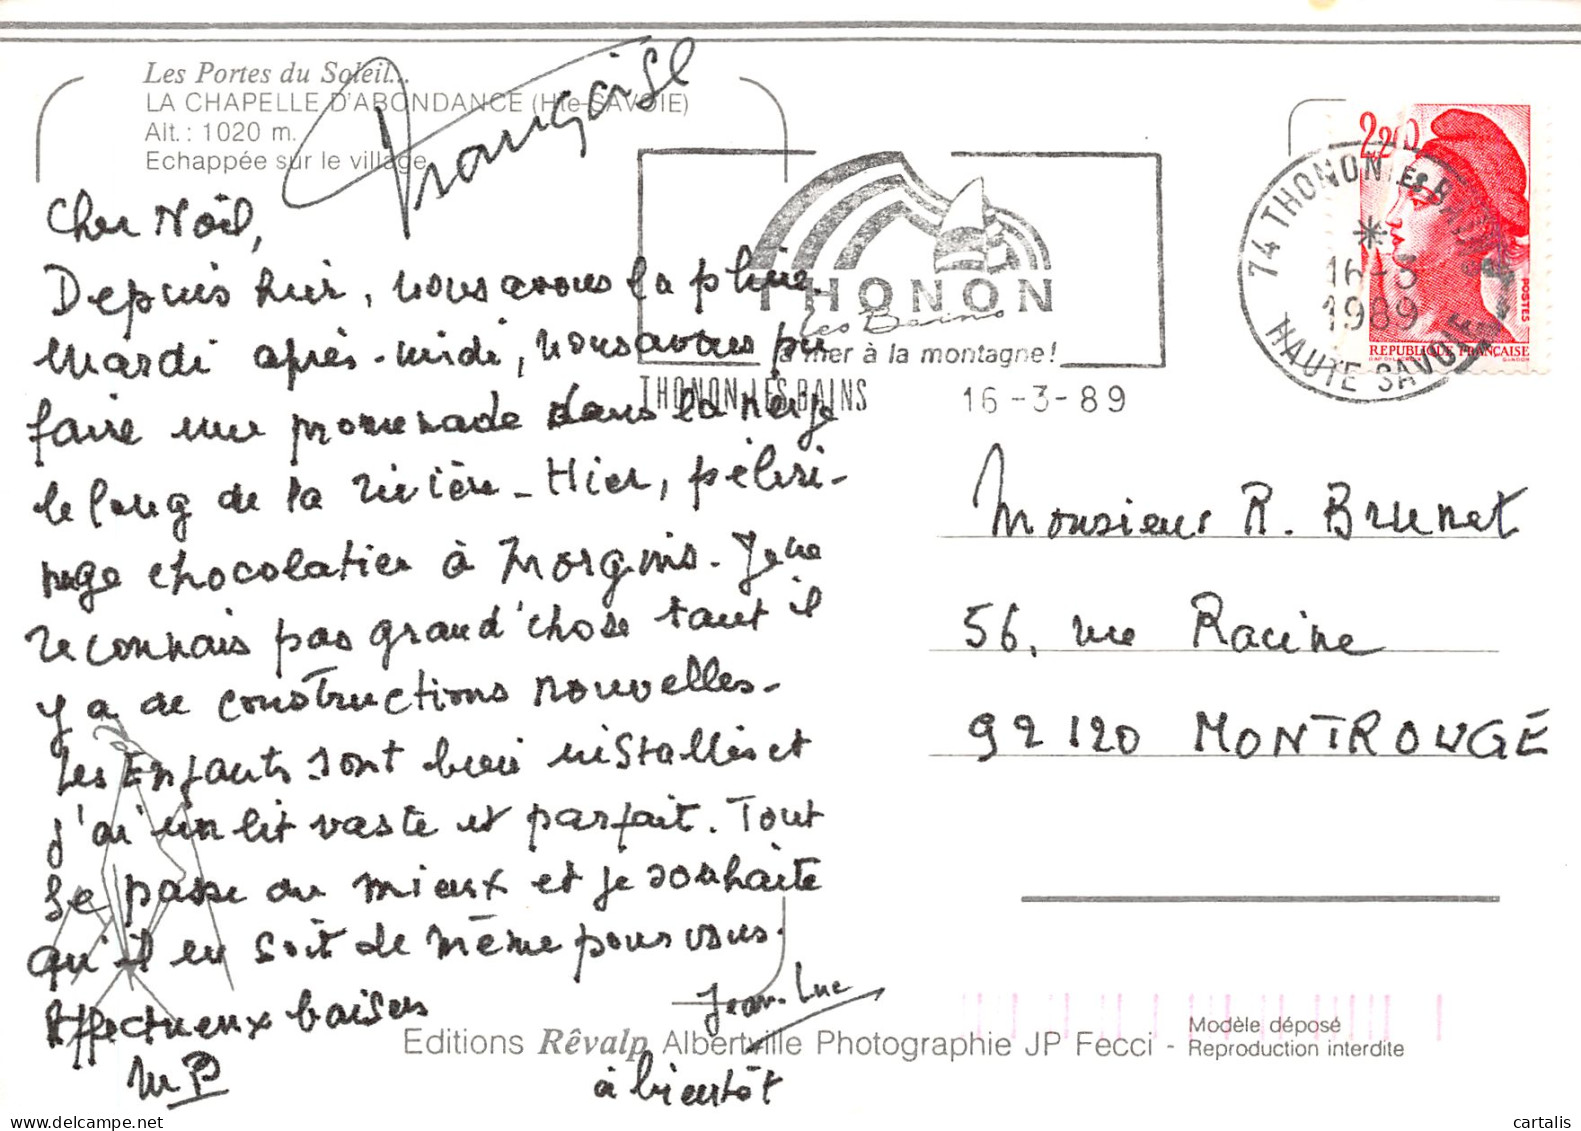 Les Portes du Soleil...
LA CHAPELLE D'ABONDANCE (Hte-SAVOIE)
Alt. : 1020 m.
Echappée sur le village
Françoise
Cher Noël,
Depuis hier, nous avons la pluie.
Mardi après-midi, nous avons pu
faire une promenade dans la neige
le long de la rivière - Hier, pèleri-
nage chocolatier à Morgins. Je ne
reconnais pas grand'chose tant il
y a de constructions nouvelles.
Les Enfants sont bien installés et
j'ai un lit vaste et parfait. Tout
se passe au mieux et je souhaite
qu'il en soit de même pour vous.
Affectueux baisers
MP
Jean-Luc
à bientôt
THONON
les Bains
mer à la montagne!
THONON-LES-BAINS
16-3-89
74 THONON LES BAINS
16-3
1989
HAUTE SAVOIE
2,20
POSTES
REPUBLIQUE FRANÇAISE
Monsieur R. Brunet
56, rue Racine
92120 MONTROUGE
Editions Rêvalp Albertville Photographie JP Fecci -
Modèle déposé
Reproduction interdite
cartalis